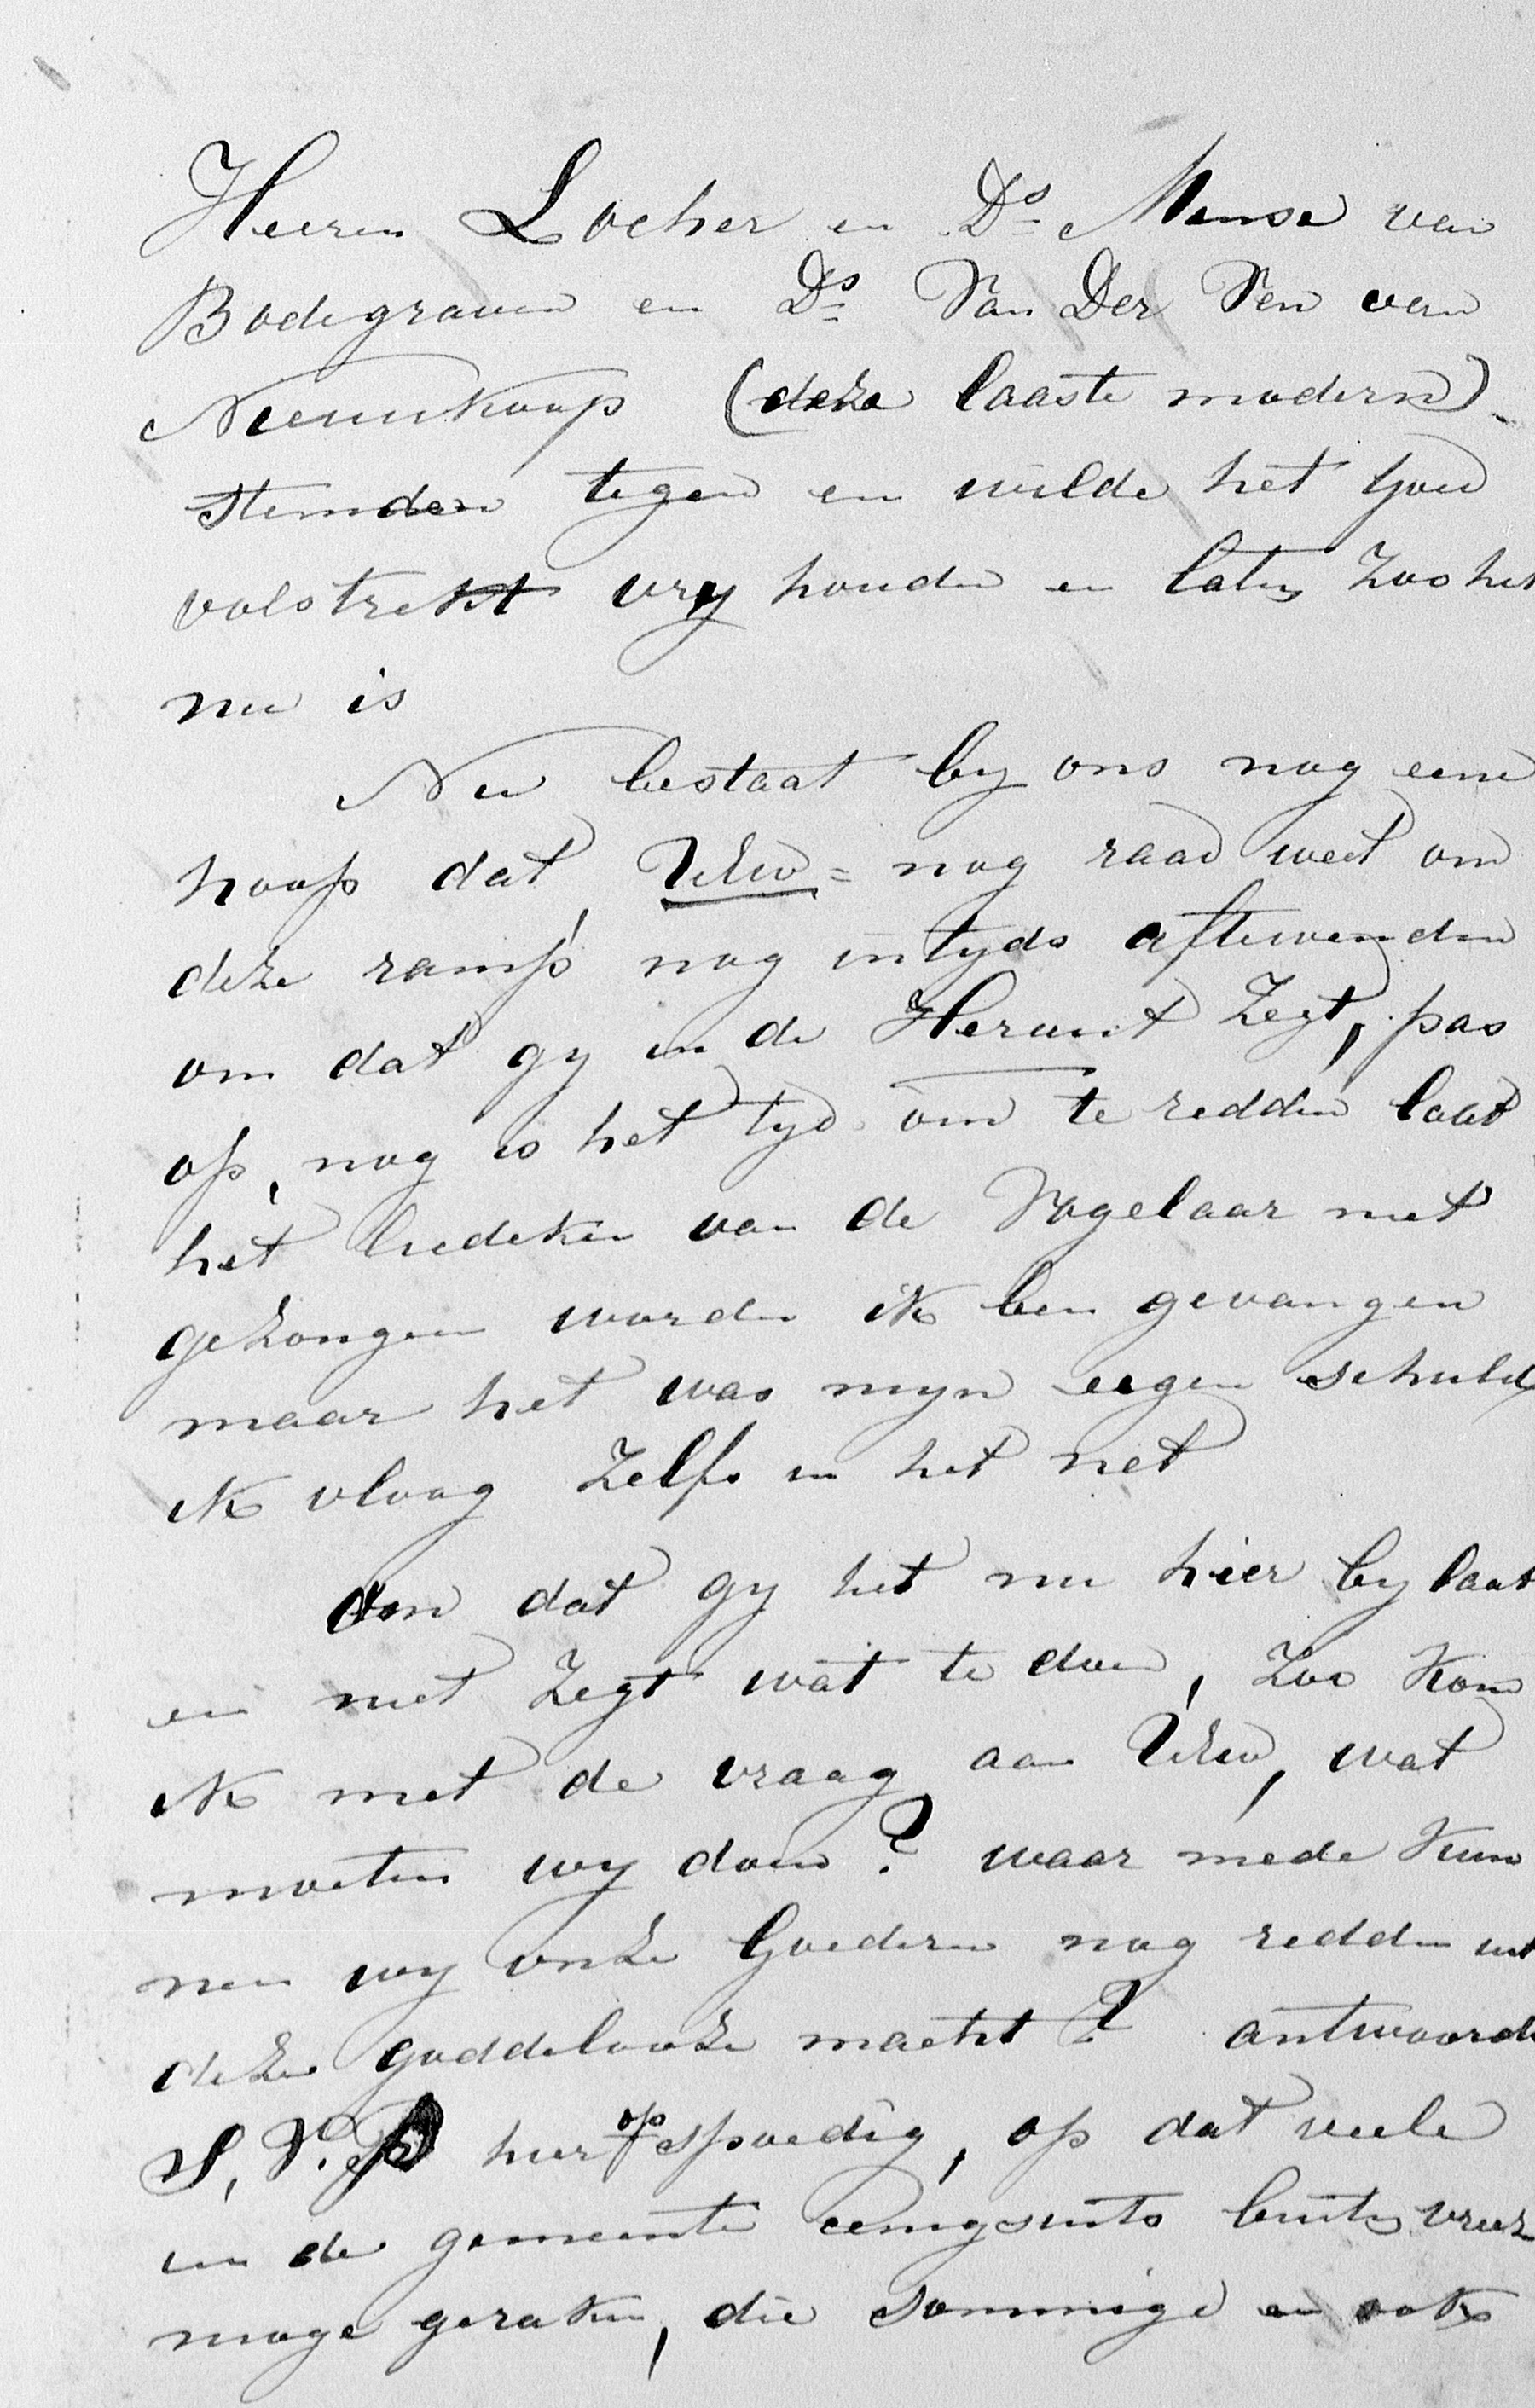 Heeren Locher en Ds. Mense van
Bodegraven en Ds. Van Der Ven van
Nieuwkoop (deze laaste modern)
stemden tegen en wilde het Goed
volstrekt vry houden en laten zoo het
nu is
Nu bestaat by ons nog eene
hoop dat UEw = nog raad weet om
deze ramp nog intyds aftewenden
om dat gy in de Heraut zegt, pas
op, nog is het tyd om te redden laat
het liedeken van de Vogelaar niet
gezongen worden ik ben gevangen
maar het was myn eigen schuld
ik vloog zelfs in het net
Om dat gy het nu hier by laat
en niet zegt wat te doen, zoo kom
ik met de vraag aan UEw, wat
moeten wy doen? waar mede kun
nen wy onze Goederen nog redden uit
deze goddelooze macht? antwoorde
S.V.P. hier op spoedig, op dat veele
in de gemeente eenigsints buiten vrees
moge geraken, die sommige en ook